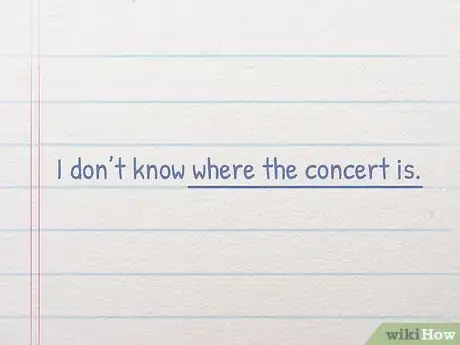 I don't know where the concert is.
wikiHow